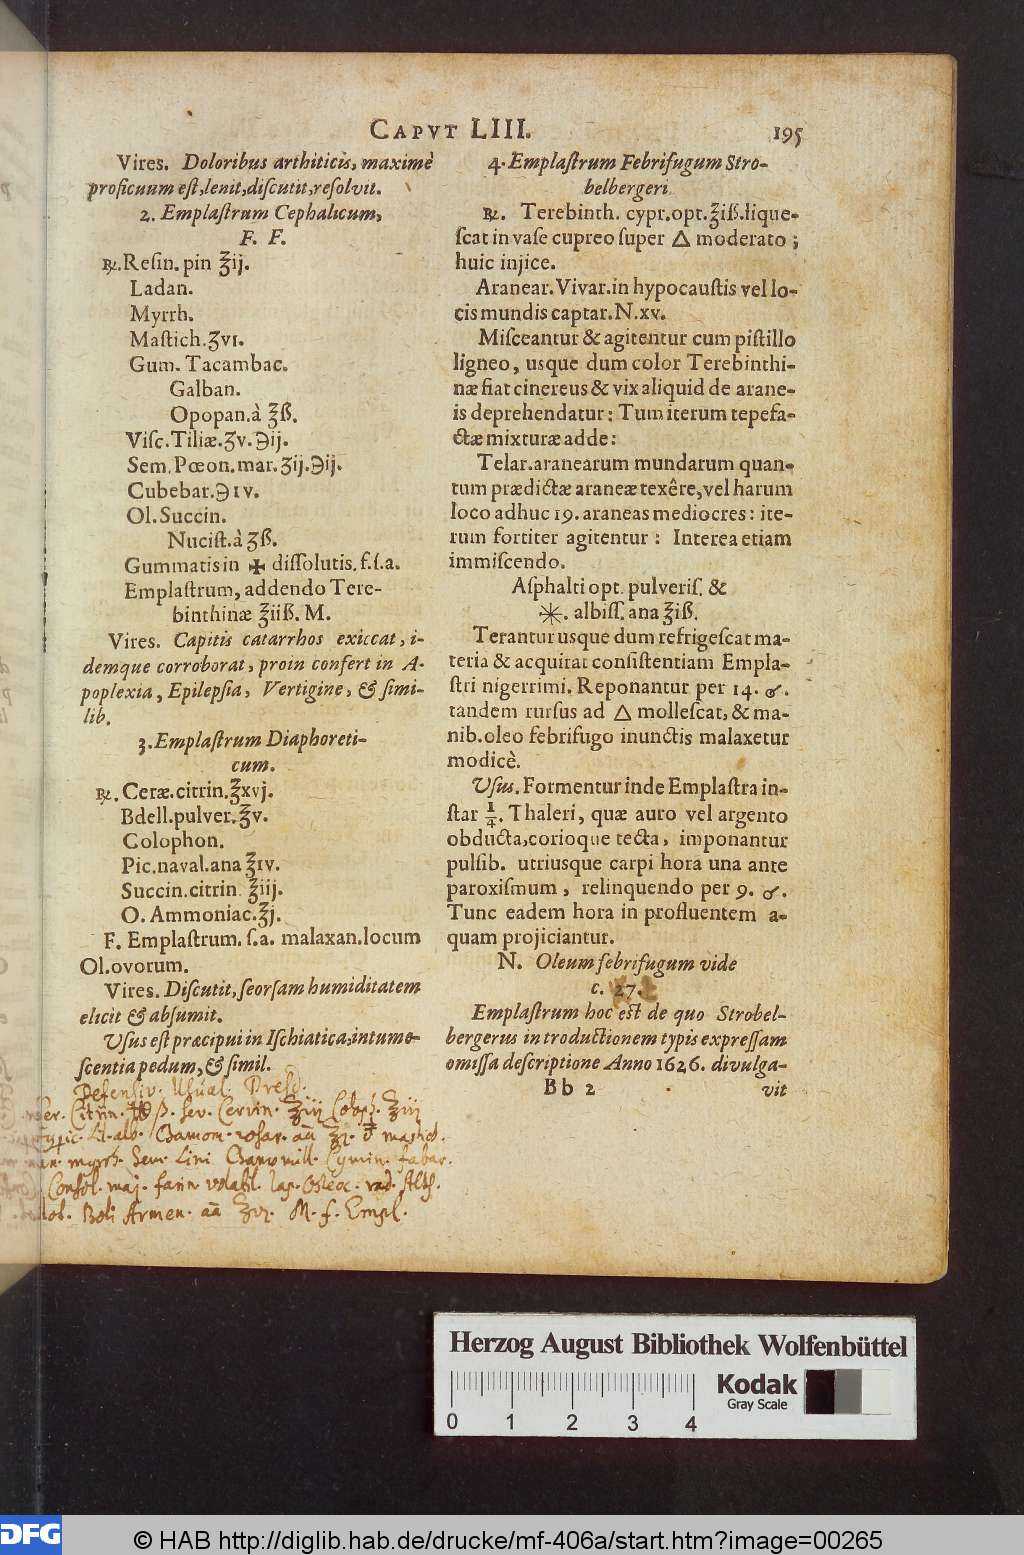 CAPVT LIII. 195
Vires. Doloribus arthiticis, maximè
proficuum est, lenit, discutit, resolvit.
2. Emplastrum Cephalicum,
F. F.
℞. Resin. pin ℥ij.
Ladan.
Myrrh.
Mastich. ʒvı.
Gum. Tacambac.
Galban.
Opopan. à ℥ß.
Visc. Tiliæ. ʒv. ℈ij.
Sem. Pœon. mar. ʒij. ℈ij.
Cubebar. ℈ıv.
Ol. Succin.
Nucist. à ʒß.
Gummatis in ✠ dissolutis. f. s. a.
Emplastrum, addendo Tere-
binthinæ ℥iiß. M.
Vires. Capitis catarrhos exiccat, i-
demque corroborat, proin confert in A-
poplexia, Epilepsia, Vertigine, & simi-
lib.
3. Emplastrum Diaphoreti-
cum.
℞. Ceræ. citrin. ℥xvj.
Bdell. pulver. ℥v.
Colophon.
Pic. naval. ana ℥ıv.
Succin. citrin. ℥iij.
O. Ammoniac. ℥j.
F. Emplastrum. s. a. malaxan. locum
Ol. ovorum.
Vires. Discutit, seorsam humiditatem
elicit & absumit.
Usus est præcipui in Ischiatica, intume-
scentia pedum, & simil.
Defensiv. Usual. Dresd.
Citrin. ß. sev. Cervin. Coloph.
alb. Chamom. rosar. aã
myrrh. Sem. Lini Cymin. fabar.
Consol. maj. farin volatil. lap. Osteoc. rad. Alth.
Boli Armen. aã M. f. Empl.
4. Emplastrum Febrifugum Stro-
belbergeri
℞. Terebinth. cypr. opt. ℥iß. lique-
scat in vase cupreo super △ moderato;
huic injice.
Aranear. Vivar. in hypocaustis vel lo-
cis mundis captar. N. xv.
Misceantur & agitentur cum pistillo
ligneo, usque dum color Terebinthi-
næ fiat cinereus & vix aliquid de arane-
is deprehendatur: Tum iterum tepefa-
ctæ mixturæ adde:
Telar. aranearum mundarum quan-
tum prædictæ araneæ texêre, vel harum
loco adhuc 19. araneas mediocres: ite-
rum fortiter agitentur: Interea etiam
immiscendo.
Asphalti opt. pulveris. &
✳. albiss. ana ℥iß.
Terantur usque dum refrigescat ma-
teria & acquirat consistentiam Empla-
stri nigerrimi. Reponantur per 14. ♂.
tandem rursus ad △ mollescat, & ma-
nib. oleo febrifugo inunctis malaxetur
modicè.
Usus. Formentur inde Emplastra in-
star ¼. Thaleri, quæ auro vel argento
obducta, corioque tecta, imponantur
pulsib. utriusque carpi hora una ante
paroxismum, relinquendo per 9. ♂.
Tunc eadem hora in profluentem a-
quam projiciantur.
N. Oleum febrifugum vide
c. 27.
Emplastrum hoc est de quo Strobel-
bergerus introductionem typis expressam
omissa descriptione Anno 1626. divulga-
Bb 2 vit
Herzog August Bibliothek Wolfenbüttel
Kodak
Gray Scale
0 1 2 3 4
DFG
© HAB http://diglib.hab.de/drucke/mf-406a/start.htm?image=00265